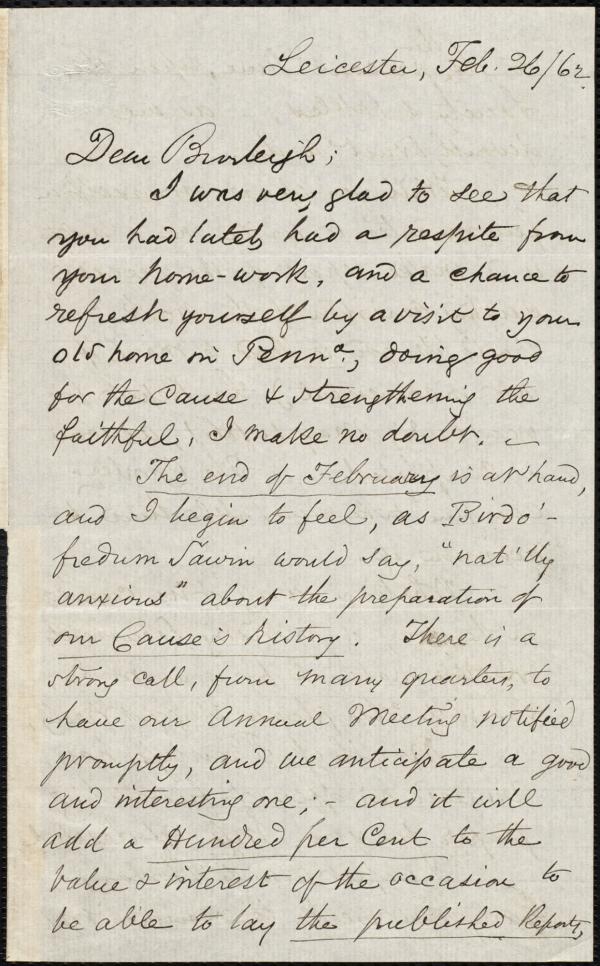 Leicester, Feb. 26/62.
Dear Burleigh;
I was very glad to see that
you had lately had a respite from
your home-work, and a chance to
refresh yourself by a visit to your
old home in Pennª., doing good
for the Cause & strengthening the
faithful, I make no doubt. –
The end of February is at hand,
and I begin to feel, as Birdo'-
fredum Sawin would say, "nat'lly
anxious" about the preparation of
our Cause's history. There is a
strong call, from many quarters, to
have our Annual Meeting notified
promptly, and we anticipate a good
and interesting one; - and it will
add a Hundred per Cent to the
value & interest of the occasion to
be able to lay the published Reports,